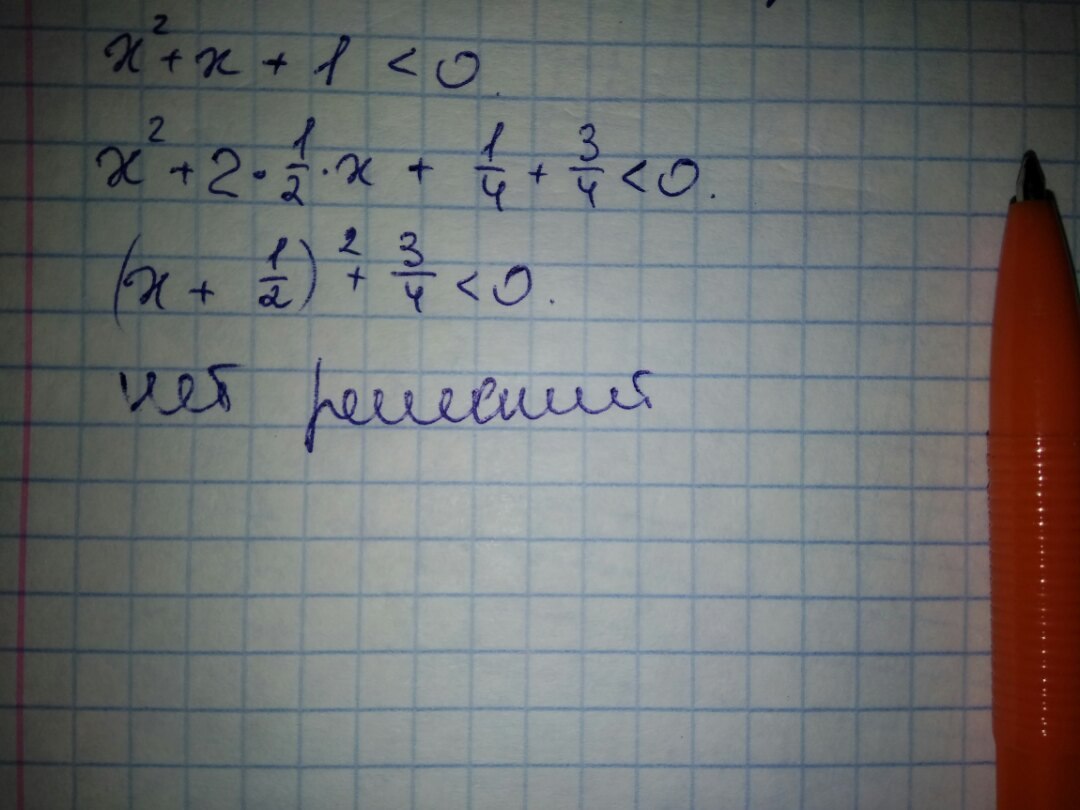 x² + x + 1 < 0.
x² + 2 · 1/2 · x + 1/4 + 3/4 < 0.
(x + 1/2)² + 3/4 < 0.
нет решений